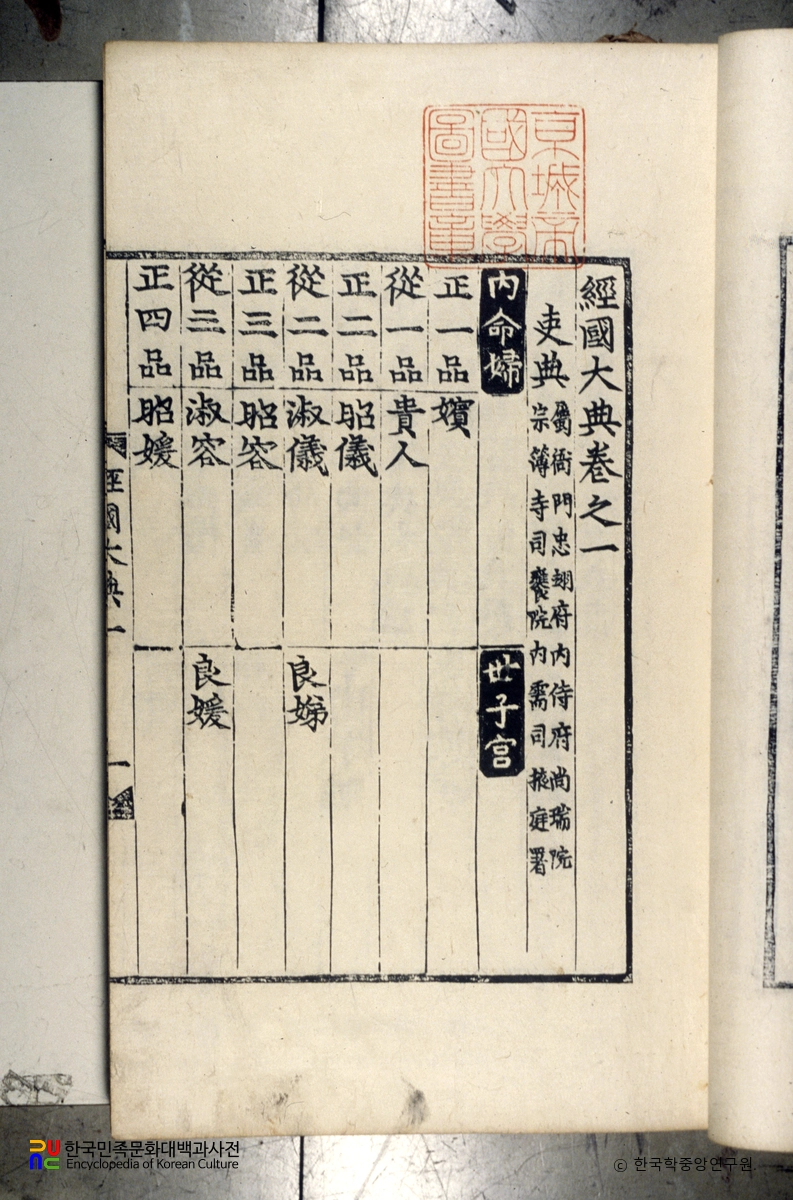 京城帝
國大學
圖書章
經國大典卷之一
吏典
屬衙門忠翊府內侍府尚瑞院
宗簿寺司饔院內需司掖庭署
內命婦
世子宮
正一品 嬪
從一品 貴人
正二品 昭儀
從二品 淑儀 良娣
正三品 昭容
從三品 淑容 良媛
正四品 昭媛
經國大典一
一
한국민족문화대백과사전
Encyclopedia of Korean Culture
© 한국학중앙연구원